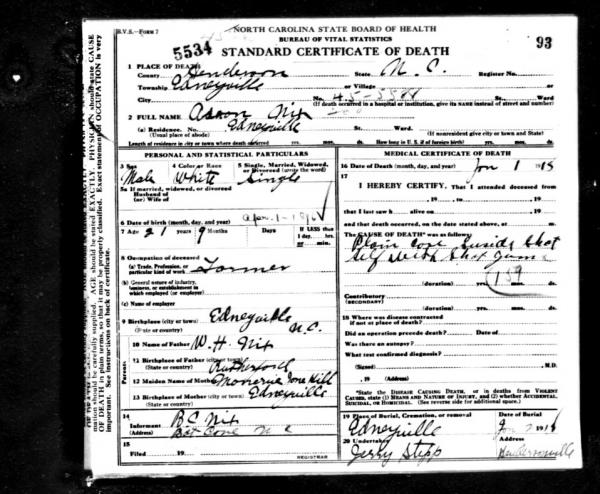 R.V.S.—FORM 7
NORTH CAROLINA STATE BOARD OF HEALTH
BUREAU OF VITAL STATISTICS
5534 STANDARD CERTIFICATE OF DEATH 93
1 PLACE OF DEATH
County Henderson State N. C. Register No.
Township Edneyville or Village
City No. 45-5584 St. Ward
(If death occurred in a hospital or institution, give its NAME instead of street and number)
2 FULL NAME Aaron Nix
(a) Residence. No. Edneyville St. Ward.
(Usual place of abode) (If nonresident give city or town and State)
Length of residence in city or town where death occurred yrs. mos. ds. How long in U. S. if of foreign birth? yrs. mos. ds.
PERSONAL AND STATISTICAL PARTICULARS
3 Sex 4 Color or Race 5 Single, Married, Widowed, or Divorced (write the word)
Male White Single
5a If married, widowed, or divorced
Husband of
(or) Wife of
6 Date of birth (month, day, and year) Apr. 1-
7 Age 21 years 9 Months Days If LESS than
1 day, hrs.
or min.
8 Occupation of deceased
(a) Trade, Profession, or particular kind of work Farmer
(b) General nature of industry, business, or establishment in which employed (or employer)
(c) Name of employer
9 Birthplace (city or town) Edneyville
(State or country) N.C.
10 Name of Father W. H. Nix
11 Birthplace of Father (city or town)
(State or country) Rutherford
12 Maiden Name of Mother Jane Hill
13 Birthplace of Mother (city or town) Edneyville
(State or country)
Parents
14
Informant B C Nix
(Address) Bat Cave N C
15
Filed 19 REGISTRAR
MEDICAL CERTIFICATE OF DEATH
16 Date of Death (month, day, and year) Jan 1 1918
17
I HEREBY CERTIFY, That I attended deceased from
, 19 , to , 19
that I last saw h alive on , 19
and that death occurred, on the date stated above, at m.
The CAUSE OF DEATH* was as follows:
Plain Case Suicide Shot
Self with Shot Gun
159
(duration) yrs. mos. ds.
Contributory
(SECONDARY)
(duration) yrs. mos. ds.
18 Where was disease contracted
if not at place of death?
Did an operation precede death? Date of
Was there an autopsy?
What test confirmed diagnosis?
(Signed) M.D.
, 19 (Address)
*State the DISEASE CAUSING DEATH, or in deaths from VIOLENT CAUSES, state (1) MEANS AND NATURE OF INJURY, and (2) whether ACCIDENTAL, SUICIDAL, OR HOMICIDAL. (See reverse side for additional space.)
19 Place of Burial, Cremation, or removal Date of Burial
Edneyville Jan 2 1918
20 Undertaker Address
Jerry Stepp Hendersonville
mation should be carefully supplied. AGE should be stated EXACTLY. PHYSICIANS should state CAUSE
OF DEATH in plain terms, so that it may be properly classified. Exact statement of OCCUPATION is very
important. See instructions on back of certificate.